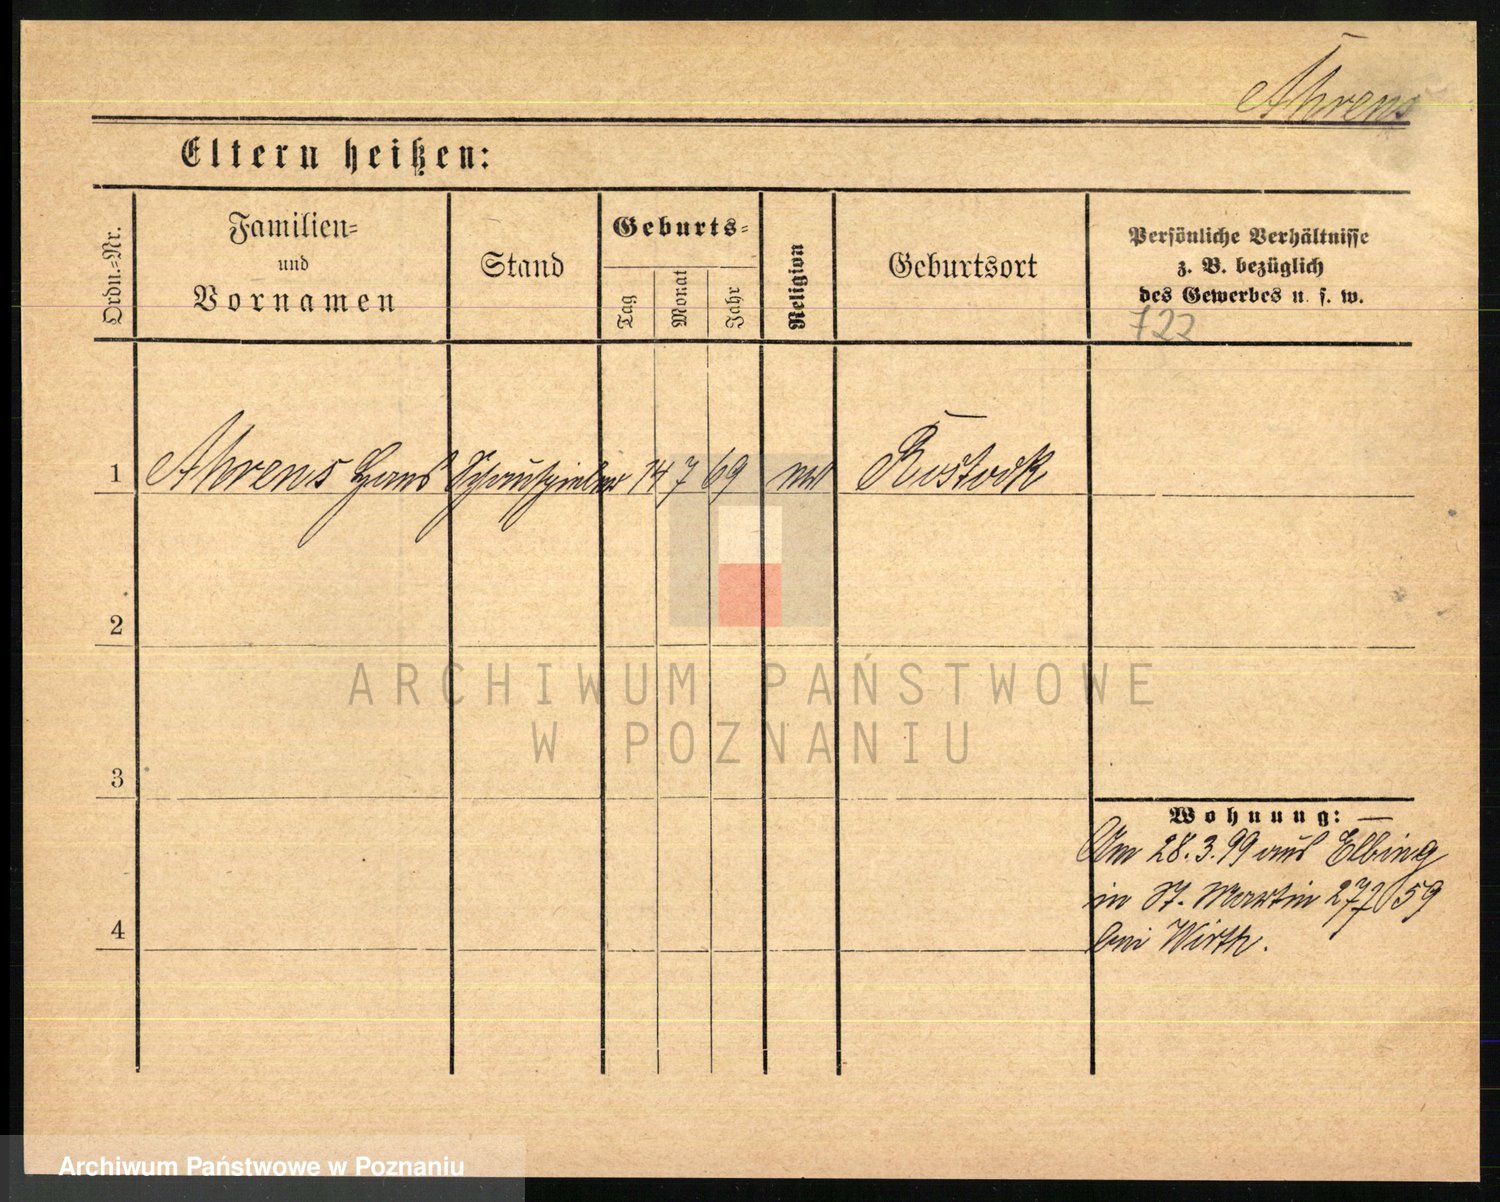 Ahrens
Eltern heißen:
Ordn.-Nr.
Familien-
und
Vornamen
Stand
Geburts-
Tag
Monat
Jahr
Religion
Geburtsort
Persönliche Verhältnisse
z. B. bezüglich
des Gewerbes u. s. w.
722
1 Ahrens Hans Schauspieler 14 7 69 Rostock
2
ARCHIWUM PAŃSTWOWE
W POZNANIU
3
Wohnung: —
Am 28.3.99 aus Elbing
in St. Martin 59
4
bei Wirth.
Archiwum Państwowe w Poznaniu